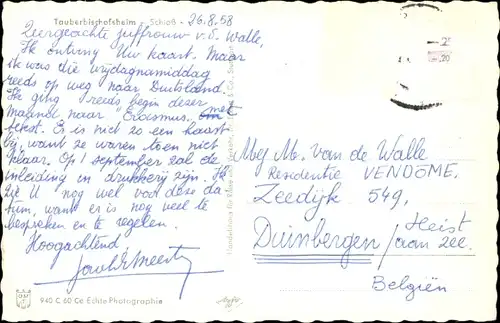 Tauberbischofsheim - Schloß -
26.8.58
Zeergeachte juffrouw v.d. Walle,
Ik ontving Uw kaart. Maar
ik was die vrijdagnamiddag
reeds op weg naar Duitsland.
Ik ging reeds begin dezer
maand naar "Erasmus" met
tekst. Er is niet zo een haast
bij, want ze waren toen niet
klaar. Op 1 september zal de
inleiding in drukkerij zijn. Ik
zie U nog wel voor deze da-
tum, want er is nog veel te
bespreken en te regelen.
Hoogachtend
Mej M. van de Walle
Residentie VENDOME,
Zeedijk 549,
Duinbergen / Heist
aan zee.
Belgiën
940 C 60 Ce Echte Photographie